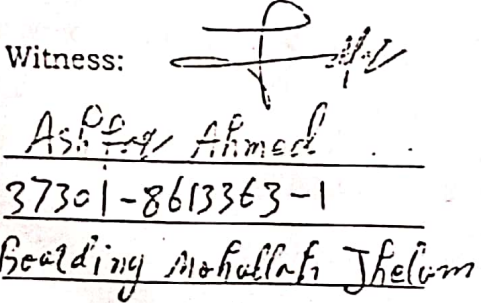 Witness:
Ashfaq Ahmed
37301-8613363-1
Boarding Mohallah Jhelum